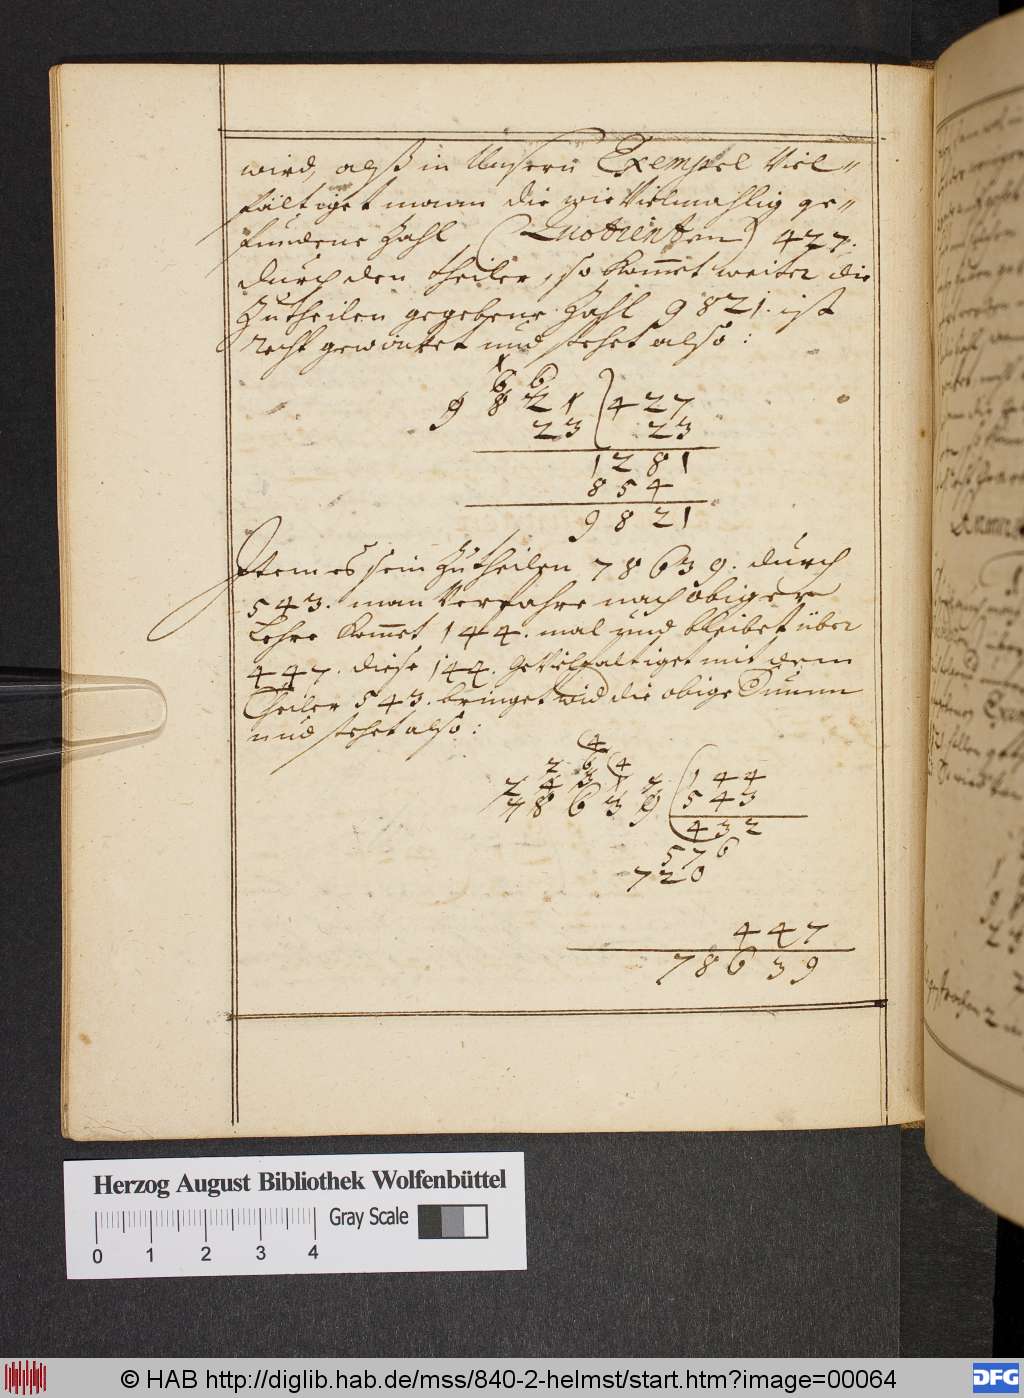 wird, alß in Unsern Exempel Viel-
fältiget mann die wie Vielmahlig ge-
fundene Zahl (Quotienten) 427.
durch den theiler, so kom̄et weiter die
Zutheilen gegebene Zahl 9821. ist
recht gewürcket und stehet also:
1
6 6
9 8 2 1 ( 4 2 7
2 3 2 3
1 2 8 1
8 5 4
9 8 2 1
Item es sein Zutheilen 78639. durch
543. man Verfahre nach obiger
Lehre kom̄et 144. mal und bleibet über
447. diese 144. geVielfaltiget mit dem
Theiler 543. bringet wid die obige Summ
und stehet also:
(4
2 6 (4
2 4 3 1 7 ( 1 4 4
7 8 6 3 9 5 4 3
4 3 2
5 7 6
7 2 0
4 4 7
7 8 6 3 9
Herzog August Bibliothek Wolfenbüttel
Gray Scale
0 1 2 3 4
© HAB http://diglib.hab.de/mss/840-2-helmst/start.htm?image=00064
DFG